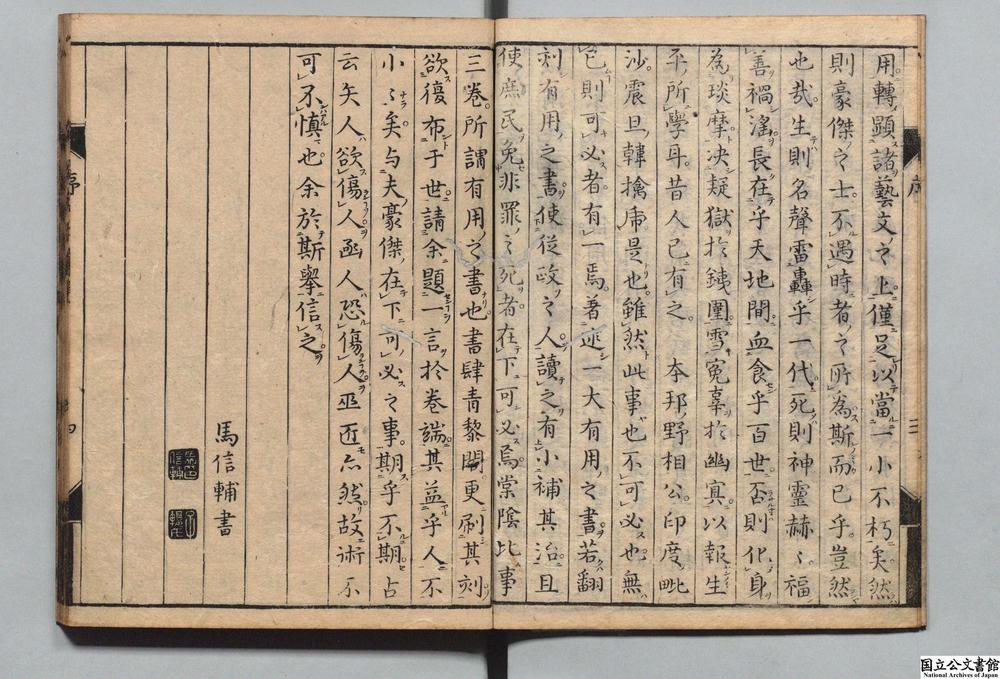 用轉顯諸藝文之上僅足以當一小不朽矣然
則豪傑之士不遇時者之所為斯而已乎豈然
也哉生則名聲雷轟乎一代死則神靈赫〻福
善禍淫長在乎天地間血食乎百世否則化身
為琰摩決疑獄於銕圍雪冤辜於幽冥以報生
平所學耳昔人已有之 本邦野相公印度毗
沙震旦韓擒虎是也雖然此事也不可必也無
已則可必者有一焉著述一大有用之書若翻
刻有用之書使從政之人讀之有小補其治且
使庶民免非罪之死者在下可必焉棠陰比事
三卷所謂有用之書也書肆青黎閣更刷其刻
欲復布于世請余題一言於卷端其益乎人不
小〻矣与夫豪傑在下可必之事期乎不期占
云矢人欲傷人函人恐傷人巫匠亦然故術不
可不慎也余於斯舉信之
馬信輔書
序
三
四
国立公文書館
National Archives of Japan